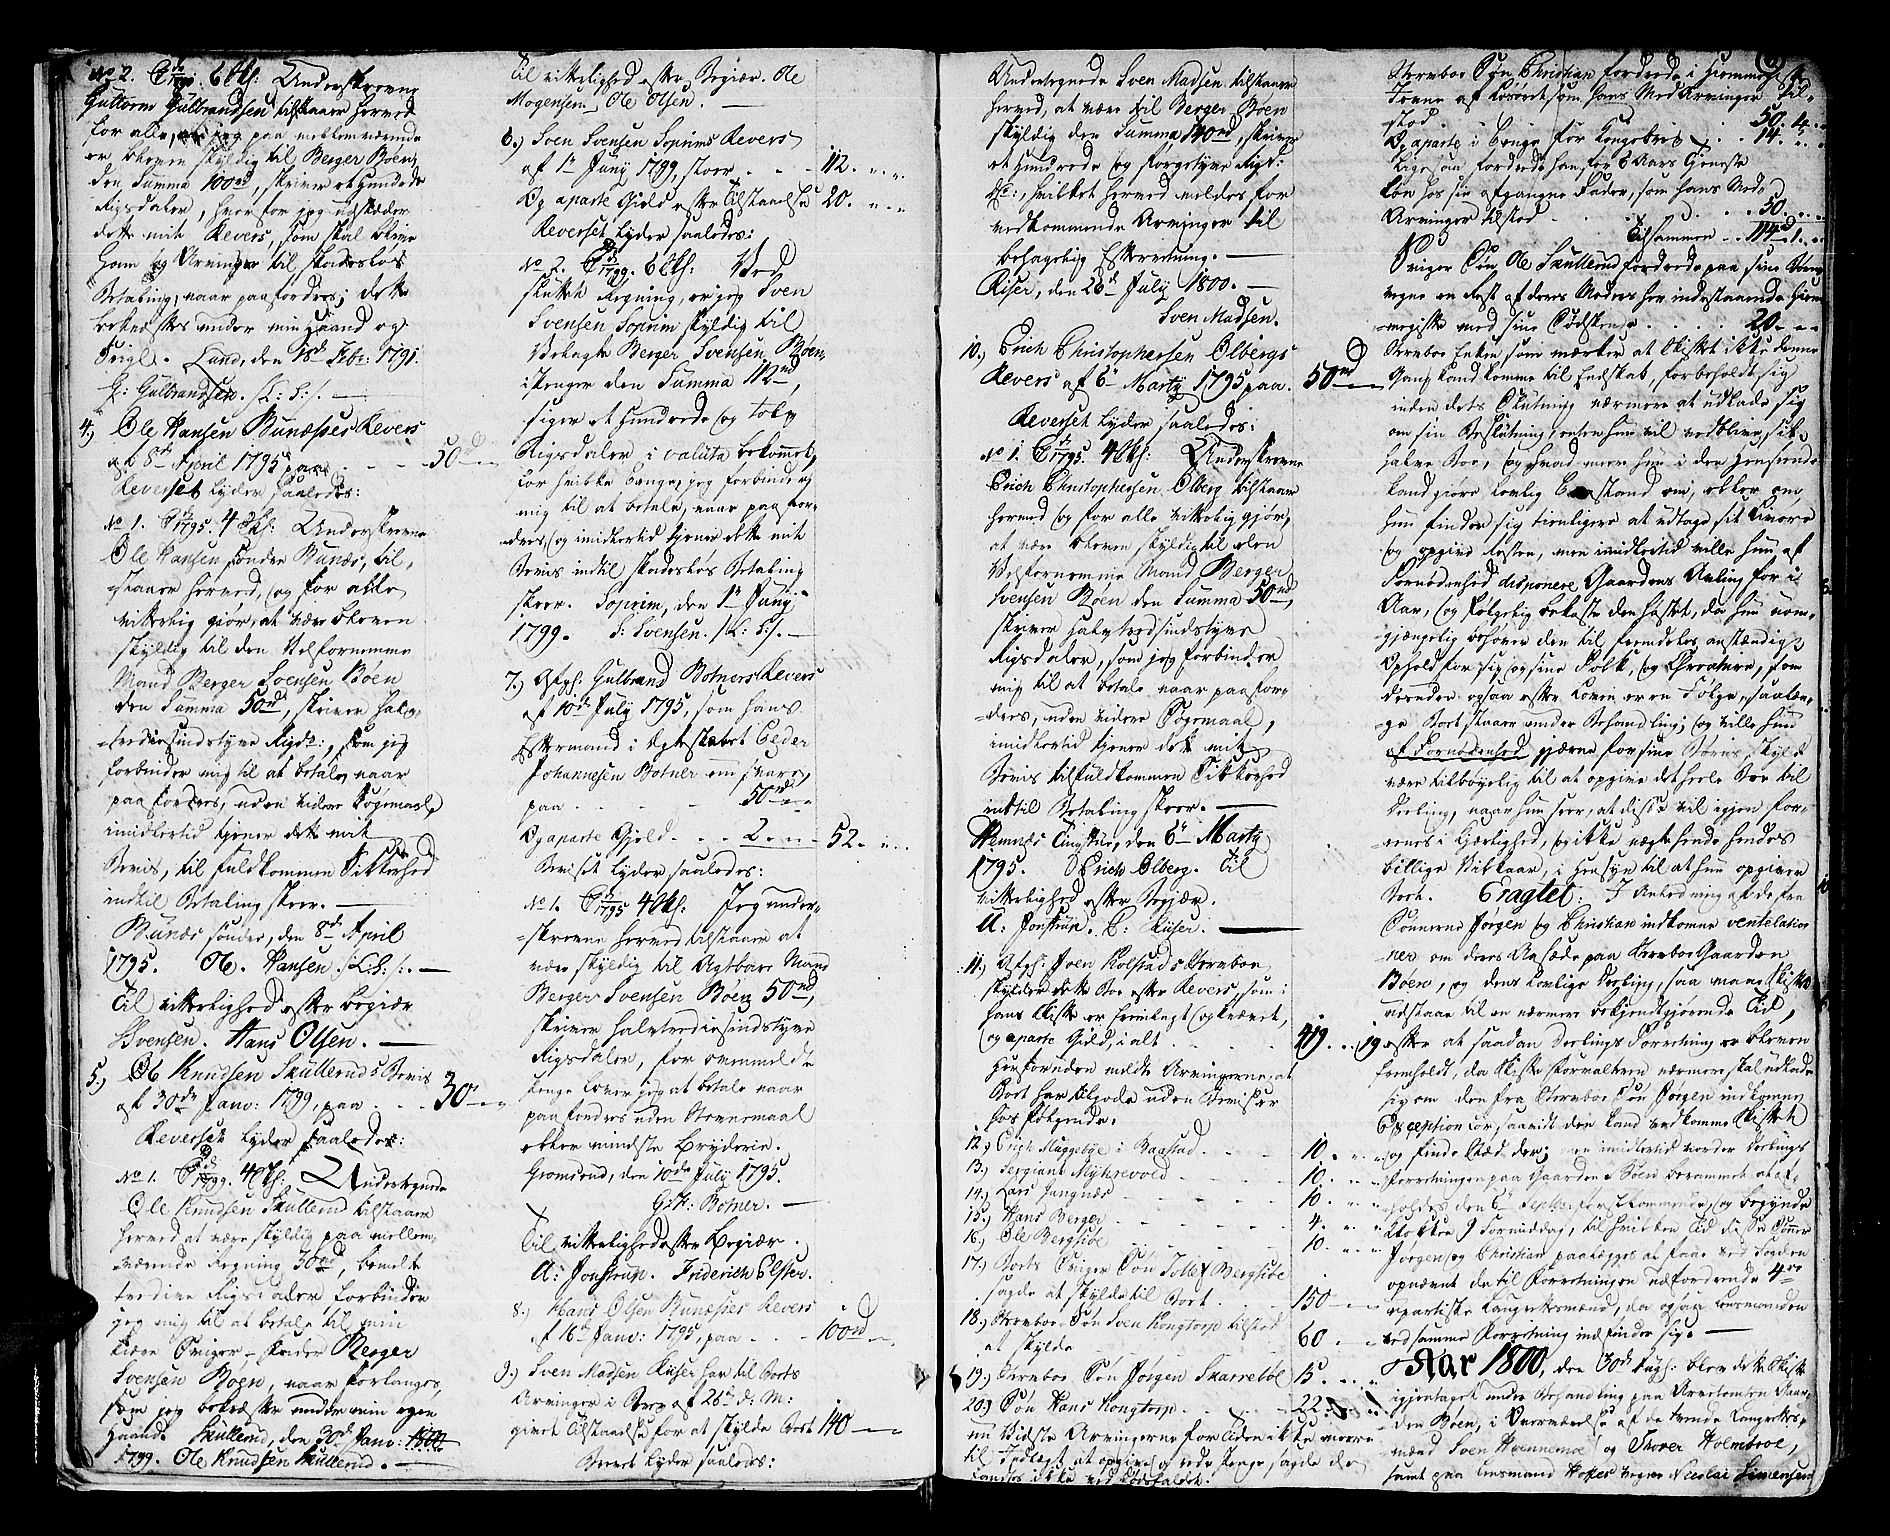 No 2. C 1790. 6 Skl. Underskrevne
Guttorm Gulbrandsen tilstaaer herved
for alle, at jeg paa mellemværende
er bleven skyldig til Berger Böen
den Summa 100rd, skriver et Hundrede
Rigsdaler, hvorfor jeg udstæder
dette mit Revers, som skal blive
ham og Arvinger til skadeslös
Betaling, naar paafordres; dette
bekræftes under min Haand og
Seigl. Land, den Febr: 1791.
G: Gulbrandsen. /: L: S: /.
4.) Ole Hansen Bunæsses Revers
af 8de April 1795 paa 50rd
Reverset lyder saaledes:
No 1. C 1795. 4 Skl: Underskrevne
Ole Hansen söndre Bunæs, til-
staaer herved, og for alle
vitterlig giör, at være bleven
skyldig til den Velfornemme
Mand Berger Svensen Böen
den Summa 50rd, skriver halv-
tredsindstyve Rigsd:, som jeg
forbinder mig til at betale naar
paafordres, uden videre Sögemaal,
imidlertid tjener dette mit
Bevis, til fuldkommen Sikkerhed
indtil Betaling skeer.
Bunæs söndre, den 8de April
1795. Ole Hansen /: L: S: /.
Til vitterlighed efter begiær
Svensen. Hans Olsen.
5.) Ole Knudsen Skullerud's Bevis
af 30de Janv: 1799, paa 30rd
Reverset lyder saaledes:
No 1. C 1799. 4 Skl: Undertegnede
Ole Knudsen Skullerud tilstaaer
herved at være skyldig paa mellem-
værende Regning 30rd, bemelte
tredive Rigsdaler forbinder
jeg mig til at betale til min
kiære Sviger-Fader Berger
Svensen Böen, naar forlanges,
som jeg bekræfter under min egen
Haand. Skullerud, den 30de Janv: 1800
1799. Ole Knudsen Skullerud.
Til vitterlighed efter Begiær. Ole
Mogensen, Ole Olsen.
6.) Sven Svensen Soprims Revers
af 1ste Juny 1799, stoer 112.
Og aparte Gield efter Tilstaaelse 20.
Reverset lyder saaledes:
No 2. C 1799. 6 Skl: Ved
sluttet Regning, er jeg Sven
Svensen Soprim skyldig til
Velagte Berger Svensen Böen
i Penger den Summa 112rd,
siger et Hundrede og tolv
Rigsdaler i valuta bekommet,
for hvilke Penge, jeg forbinder
mig til at betale, naar paafor-
dres, og imidlertid tjener dette mit
Bevis indtil skadeslös Betaling
skeer. Soprim, den 1ste Juny
1799. S: Svensen. /: L: S: /.
7.) Afg: Gulbrand Botners Revers
af 10de July 1795, som hans
Eftermand i Egteskabet Peder
Johannesen Botner em svare,
paa 50rd
Og aparte Gjeld 2. 52.
Beviset lyder saaledes:
No 1. C 1795 4 Skl: Jeg under-
skrevne herved tilstaaer at
være skyldig til Agtbare Mand
Berger Svensen Böen 50rd,
skriver halvtredsindstyve
Rigsdaler, for ovenmeldte
Penge lover jeg at betale naar
paafordres uden Stevnemaal
eller mindste Bryderie.
Gromsrud, den 10de July 1795.
G: H: Botner.
Til vitterlighed efter Begiær.
A: Jonstrup. Friderich Elster.
8.) Hans Olsen Bunæsses Revers
af 16de Janv: 1795, paa 100rd
9.) Sven Madsen Riiser har til Boets
Arvinger i Brev af 26de d: M:
givet Tilstaaelse for at skylde Boet 140
Brevet lyder saaledes:
Undertegnede Sven Madsen tilstaaer
herved, at være til Berger Böen
skyldig den Summa 140rd, skriver
et Hundrede og förgetyve Rigs:
dl:, hvilket herved meldes for
vedkommende Arvinger til
behagelig Efterretning.
Riser, den 26de July 1800.
Sven Madsen.
10.) Erich Christophersen Ölbergs
Revers af 6te Marty 1795 paa 50rd
Reverset lyder saaledes:
No 1. C 1795. 4 Skl: Underskrevne
Erich Christophersen Ölberg tilstaaer
herved og for alle vitterlig gjör,
at være bleven skyldig til den
Velfornemme Mand Berger
Svensen Böen den Summa 50rd,
skriver halvtredsindstyve
Rigsdaler, som jeg forbinder
mig til at betale naar paafor-
dres, uden videre Sögemaal,
imidlertid tjener dette mit
Bevis til fuldkommen Sikkerhed
indtil Betaling skeer.
Hemnæs Tingstue, den 6te Marty
1795. Erich Ölberg. Til
vitterlighed efter Begjær.
A: Jonstrup. C: Riiser.
11.) Afg: Joen Kolstads Stervboe
skylder dette Boe efter Revers, som
hans Skifte er fremlagt og krævet,
og aparte Gield, i alt 419. 19
Herforuden meldte Arvingerne, at
Boet har Tilgode uden Beviser
hos Fölgende:
12.) Erich Muggebye i Baastad 10.
13.) Sergiant Myhrevold 10.
14.) Lars Jangnæs 10
15.) Hans Berger 4.
16.) Ole Bergsibe 10.
17.) Boets Sviger Sön Tollef Bergsibe
sagde at skylde til Boet 150
18.) Stervboe Sön Sven Kongtorp tilstod
at skylde 60
19.) Stervboe Sön Jörgen Skarreböl 15.
20.) Sön Hans Kongtorp 22.
nu vidste Arvingerne for Tiden ikke mere
til Indtægt at opgive, rede Penge sagde de
fandtes ikke ved Dödsfaldet.
Stervboe Sön Christian fordrede i Hiemmegifte
Tvende af Lösöret som hans Med Arvinger til-
stod 50.
Og aparte i Penge for Kongebrev 14.
Ligesom fordrede han for 6 Aars Tjeneste
lön hos sin afgangne Fader, som hans Med
Arvinger tilstod 50.
Tilsammen 114. 1.
Sviger Sön Ole Skullerud fordrede paa sine Börns
vegne en Rest af deres Moders her indestaaende Hiem-
megifte med sine Södskende 20.
Stervboe Enken som mærker at Skiftet ikke denne
Gang kand komme til Endskab, forbeholdt sig
inden dets Slutning nærmere at udlade sig
om sin Beslutning, enten hun vil vedblive sit
halve Boe, og hvad mere hun i den henseende
kand giöre lovlig Paastand om, eller om
hun finder sig tienligere at udtage sit Livöre
og opgive Resten, men imidlertid ville hun af
Fornödenhed disponere Gaardens Avling for i
Aar, og fölgelig bekoste den höstet, da hun uom-
gjængelig behöver den til fremdeles anstændig
Ophold for sig og sine Folk, og Creature, som
derunder ogsaa efter Loven er en Fölge, saalæn-
ge Boet staaer under Behandling; og ville hun
af Fornödenhed gjerne for sine Börns Skyld
være tilböyelig til at opgive det heele Boe til
Deeling, naar hun seer, at disse vil igjen for-
eenes i Kjærlighed, og ikke nægte hende hendes
billige Vilkaar, i Hensyn til at hun opgiver
Boet. Eragtet: I Anledning af de fra
Sönnerne Jörgen og Christian indkomne ventelation-
ner om deres Aasæde paa Stervboe Gaarden
Böen, og dens lovlige Deeling, saa maae Skiftet
udstaae til en nærmere bekjendtgjörende Tid,
efter at saadan Deelings Forretning er bleven
fremholdt, da Skifteforvalteren nærmere skal udlade
sig om den fra Stervboe Sön Jörgen indkomne
Exception forsaavidt den kand vedkomme Skiftet
og finde Sted der; men imidlertid vorder Deelings
Forretningen paa Gaarden Böen berammet at af-
holdes den 6te Septbr: förstkommende, og begynde
Klokken 9 Formiddag, til hvilken Tid disse Sönner
Jörgen og Christian paalægges at faae ved Fogden
opnævnt de til Forretningen udfordrende 4re
upartiske Laugrettesmænd, da ogsaa Lensmanden
ved samme Forretning indfinder sig.
Aar 1800, den 30de Aug: blev dette Skifte
igjentaget under Behandling paa Arvetomten Gaar-
den Böen, i Overværelse af de tvende Laugrettes-
mænd Sven Honnemoe og Thover Holmbroe,
samt paa Lensmand Hofses vegne Nicolai Simensen